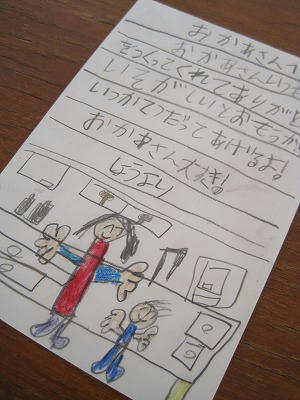 おかあさんへ
おかあさんいつも
をつくってくれてありがと
いそがしいとおもうか
いつかてつだってあげるよ!
おかあさん大すき!
しょうより